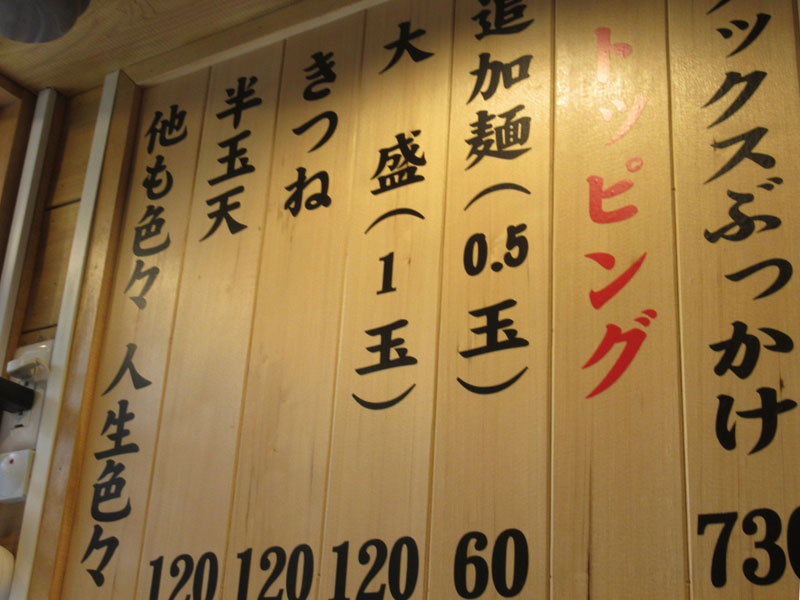 ックスぶっかけ 730
トッピング
追加麺(0.5玉) 60
大盛(1玉) 120
きつね 120
半玉天 120
他も色々 人生色々